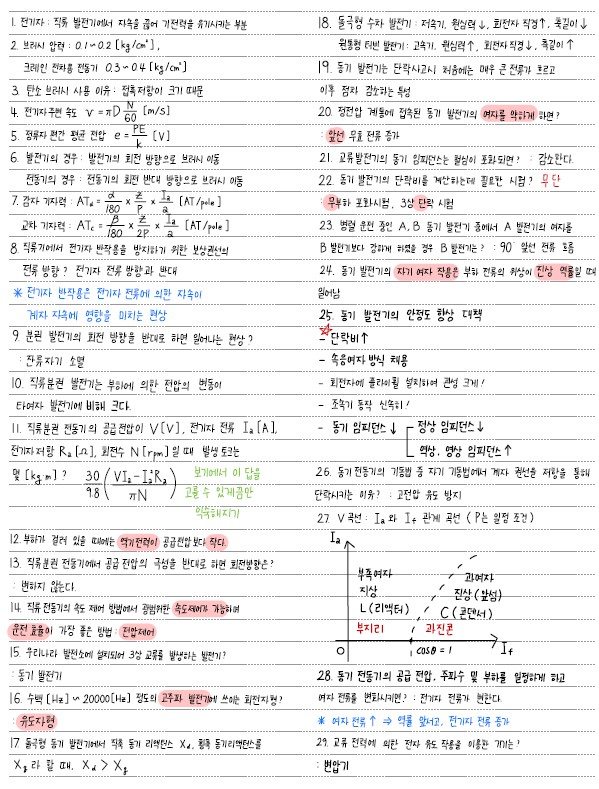 1. 전기자 : 직류 발전기에서 자속을 끊어 기전력을 유기시키는 부분
2. 브러시 압력 : 0.1 ~ 0.2 [kg/cm²],
크레인 전차용 전동기 0.3 ~ 0.4 [kg/cm²]
3. 탄소 브러시 사용 이유 : 접촉저항이 크기 때문
4. 전기자 주변 속도 v = πD N/60 [m/s]
5. 정류자 편간 평균 전압 e = PE/k [V]
6. 발전기의 경우 : 발전기의 회전 방향으로 브러시 이동
전동기의 경우 : 전동기의 회전 반대 방향으로 브러시 이동
7. 감자 기자력 : ATd = α/180 × Z/P × Ia/2 [AT/pole]
교차 기자력 : ATc = β/180 × Z/2P × Ia/2 [AT/pole]
8. 직류기에서 전기자 반작용을 방지하기 위한 보상권선의
전류 방향? 전기자 전류 방향과 반대
* 전기자 반작용은 전기자 전류에 의한 자속이
계자 자속에 영향을 미치는 현상
9. 분권 발전기의 회전 방향을 반대로 하면 일어나는 현상?
: 잔류자기 소멸
10. 직류분권 발전기는 부하에 의한 전압의 변동이
타여자 발전기에 비해 크다.
11. 직류분권 전동기의 공급전압이 V[V], 전기자 전류 Ia[A],
전기자 저항 Ra[Ω], 회전수 N[rpm]일 때 발생 토크는
몇 [kg·m]? 30/9.8 (VIa-Ia²Ra / πN) 보기에서 이 답을
고를 수 있게끔만
익숙해지기
12. 부하가 걸려 있을 때에는 역기전력이 공급전압보다 작다.
13. 직류분권 전동기에서 공급전압의 극성을 반대로 하면 회전방향은?
: 변하지 않는다.
14. 직류 전동기의 속도 제어 방법에서 광범위한 속도제어가 가능하며
운전 효율이 가장 좋은 방법 : 전압제어
15. 우리나라 발전소에 설치되어 3상 교류를 발생하는 발전기?
: 동기 발전기
16. 수백 [Hz] ~ 20000 [Hz] 정도의 고주파 발전기에 쓰이는 회전자형?
: 유도자형
17. 돌극형 동기 발전기에서 직축 동기 리액턴스 Xd, 횡축 동기리액턴스를
Xq라 할 때, Xd > Xq
18. 돌극형 수차 발전기 : 저속기, 원심력↓, 회전자 직경↑, 축길이↓
원통형 터빈 발전기 : 고속기, 원심력↑, 회전자 직경↓, 축길이↑
19. 동기 발전기는 단락사고시 처음에는 매우 큰 전류가 흐르고
이후 점차 감소하는 특성
20. 정전압 계통에 접속된 동기 발전기의 여자를 약하게 하면?
: 앞선 무효 전류 증가
21. 교류발전기의 동기 임피던스는 철심이 포화되면? : 감소한다.
22. 동기 발전기의 단락비를 계산하는데 필요한 시험? 무단
: 무부하 포화시험, 3상 단락 시험
23. 병렬 운전 중인 A, B 동기 발전기 중에서 A 발전기의 여자를
B 발전기보다 강하게 하였을 경우 B 발전기는? : 90° 앞선 전류 흐름
24. 동기 발전기의 자기 여자 작용은 부하 전류의 위상이 진상 역률일 때
일어남
25. 동기 발전기의 안정도 향상 대책
☆ - 단락비↑
- 속응여자 방식 채용
- 회전자에 플라이휠 설치하여 관성 크게!
- 조속기 동작 신속히!
- 동기 임피던스↓ 정상 임피던스↓
역상, 영상 임피던스↑
26. 동기 전동기의 기동법 중 자기 기동법에서 계자 권선을 저항을 통해
단락시키는 이유? : 고전압 유도 방지
27. V곡선 : Ia 와 If 관계 곡선 (P는 일정 조건)
Ia
부족여자
지상
L(리액터)
부지리
과여자
진상 (앞섬)
C (콘덴서)
과진콘
0 cosθ = 1 If
28. 동기 전동기의 공급 전압, 주파수 및 부하를 일정하게 하고
여자 전류를 변화시키면? : 전기자 전류가 변한다.
* 여자 전류↑ ⇒ 역률 앞서고, 전기자 전류 증가
29. 교류 전력에 의한 전자 유도 작용을 이용한 기기는?
: 변압기